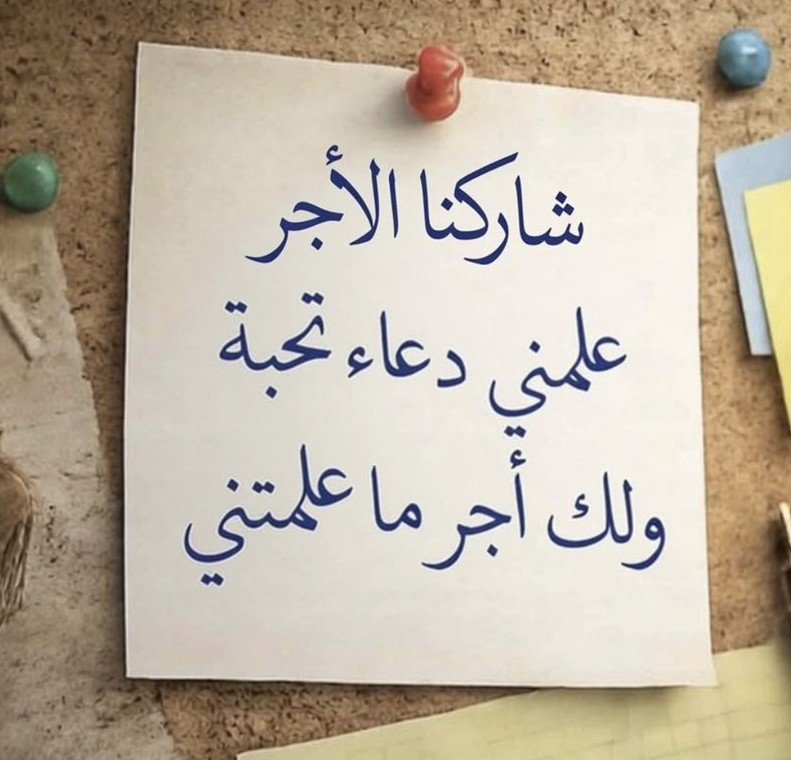 شاركنا الأجر
علمني دعاء تحبة
ولك أجر ما علمتني